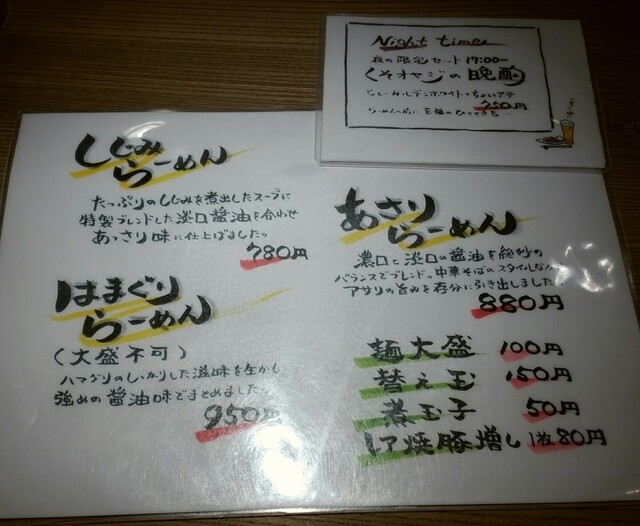 Night time
夜の限定セット 17:00ー
くそオヤジの晩酌
ヒューガルデンホワイト+ちょいアテ
らーめん前に至福のひとときを…
750円
しじみ
らーめん
たっぷりのしじみを煮出したスープに
特製ブレンドした淡口醤油を合わせ
あっさり味に仕上げました。
780円
はまぐり
らーめん
(大盛不可)
ハマグリのしっかりした滋味を生かし
強めの醤油味でまとめました。
950円
あさり
らーめん
濃口と淡口の醤油を絶妙の
バランスでブレンド。中華そばのスタイルながら
アサリの旨みを存分に引き出しました。
880円
麺大盛 100円
替え玉 150円
煮玉子 50円
レア焼豚増し 1枚80円